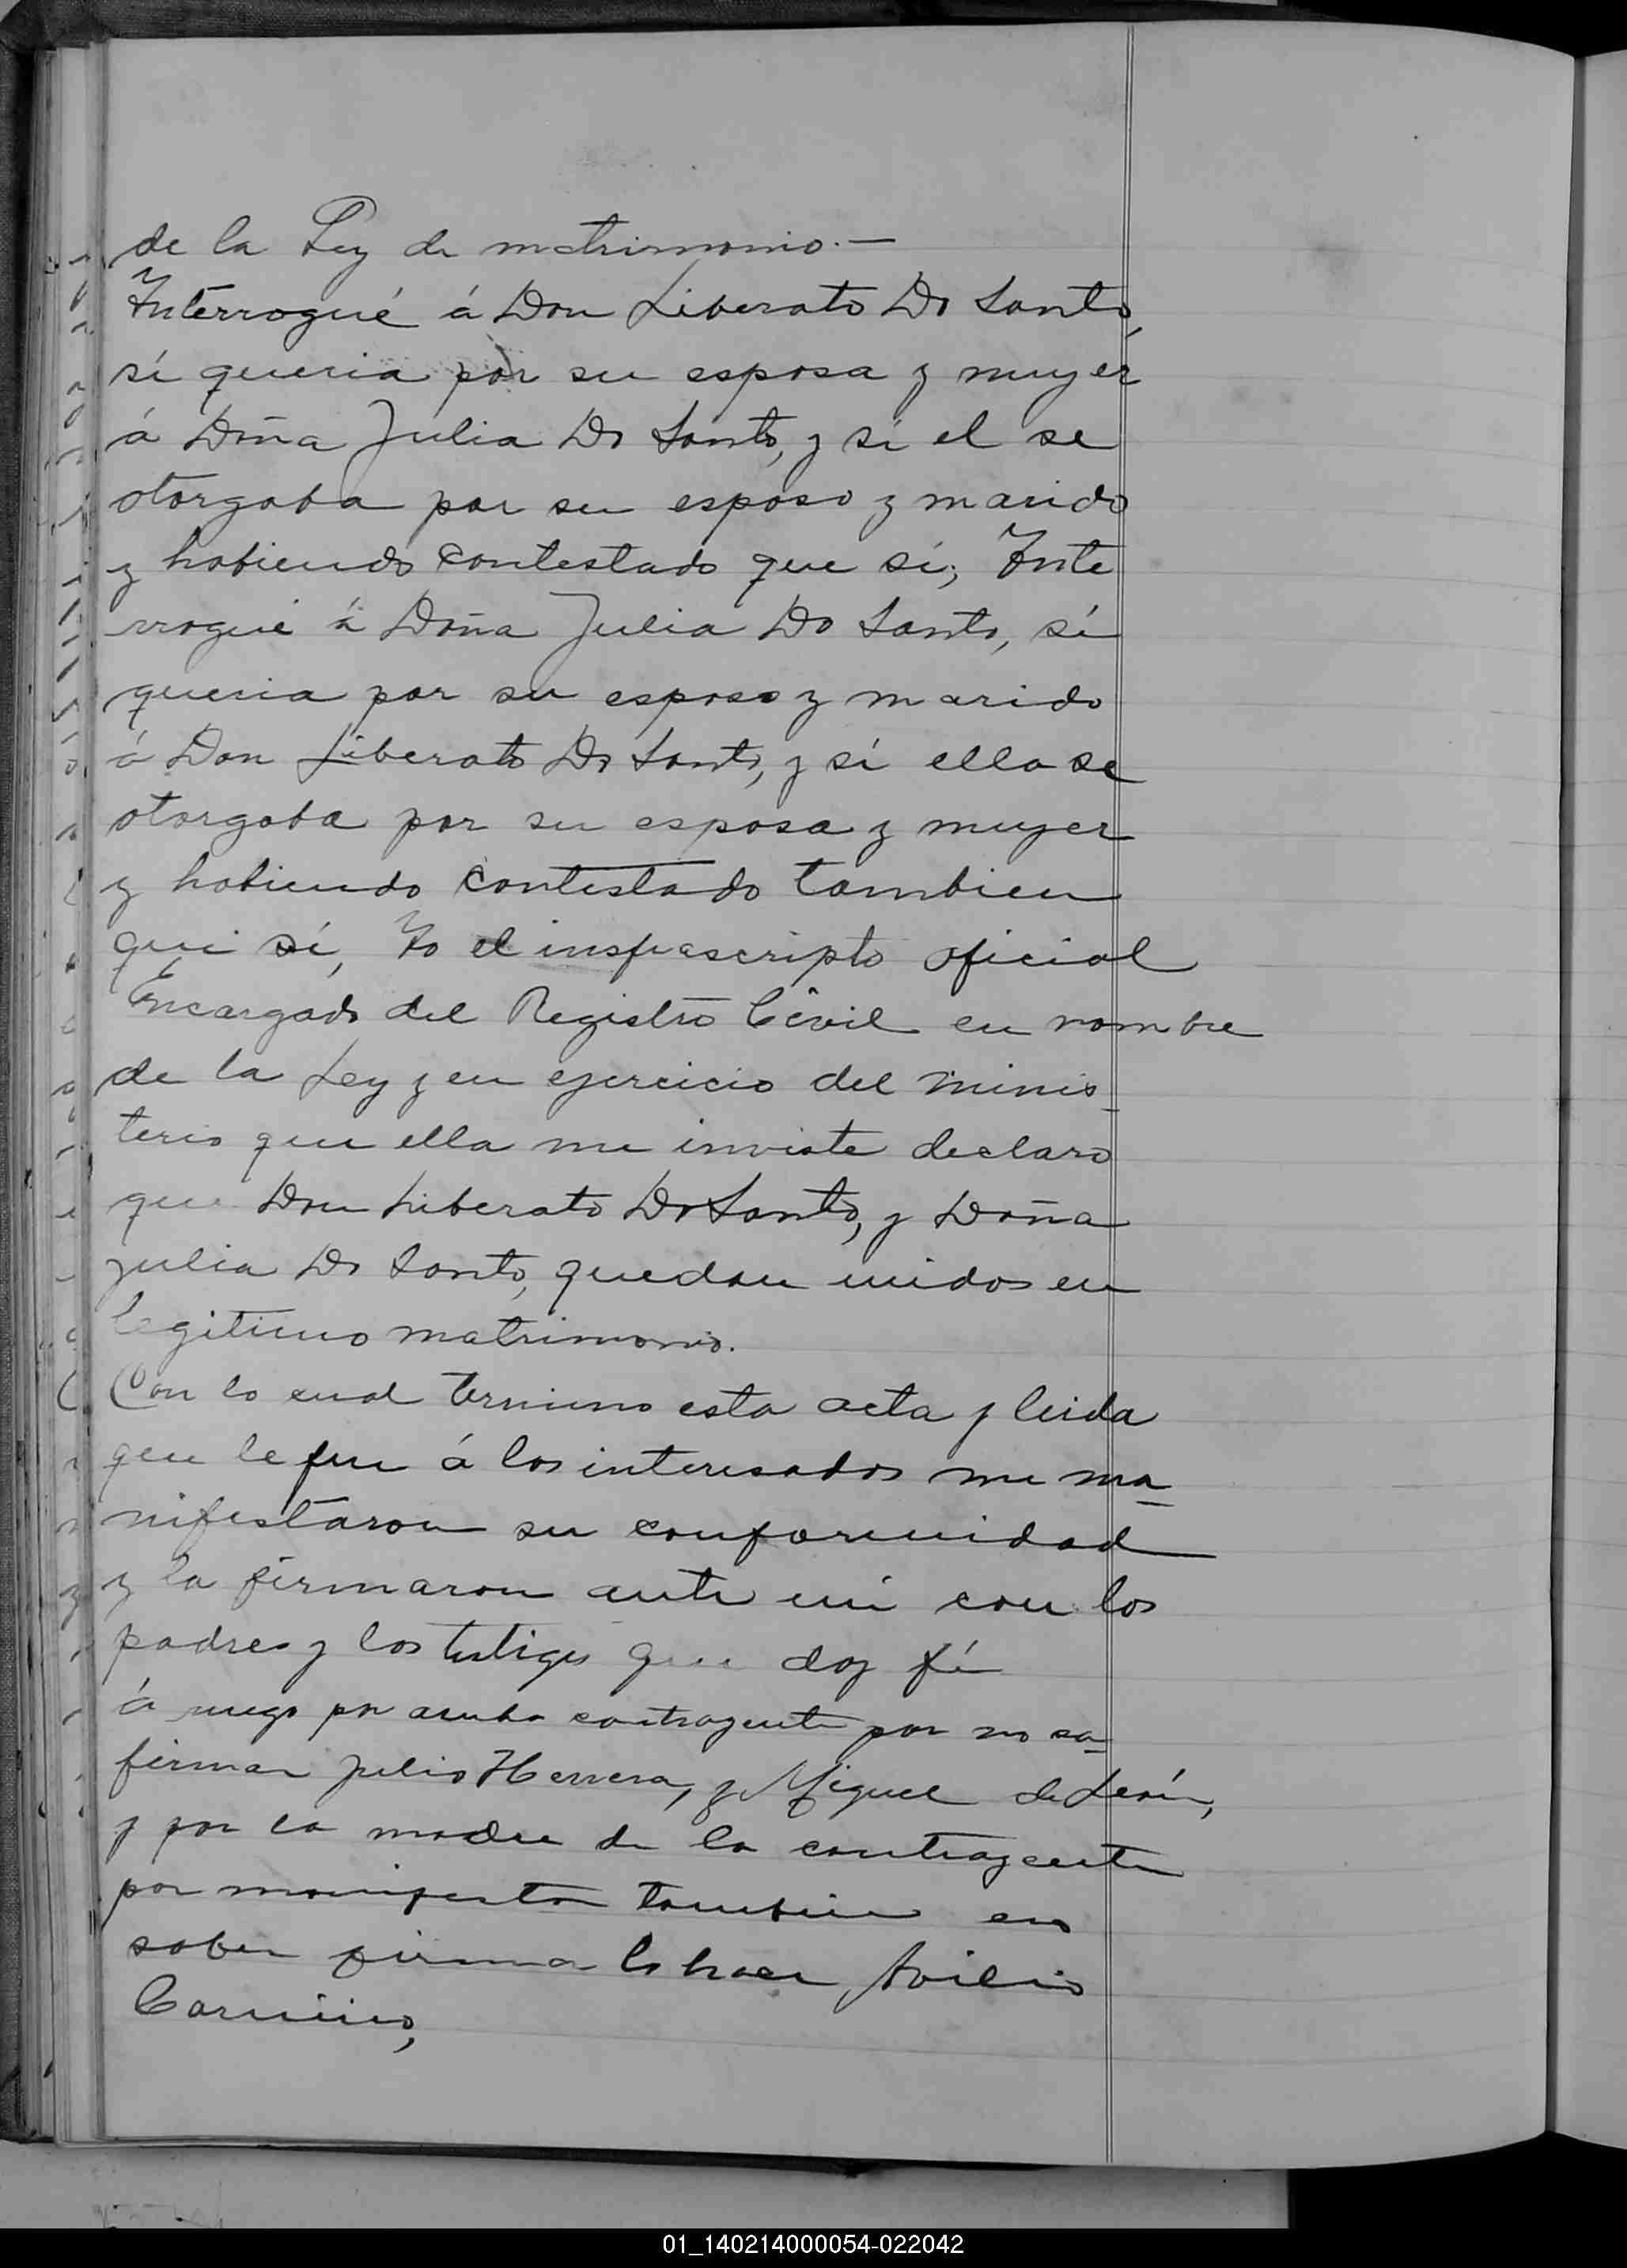 de la Ley de matrimonio.—
Interrogué á Don Liberato Do Santo,
si queria por su esposa y mujer
á Doña Julia Do Santo, y si el se
otorgaba por su esposo y marido
y habiendo contestado que si; Inte
rrogué á Doña Julia Do Santo, si
queria por su esposo y marido
á Don Liberato Do Santo, y si ella se
otorgaba por su esposa y mujer
y habiendo contestado tambien
que si, Yo el insfrascripto oficial
Encargado del Registro Civil en nombre
de la Ley y en ejercicio del minis-
terio que ella me inviste declaro
que Don Liberato Do Santo, y Doña
Julia Do Santo, quedan unidos en
legitimo matrimonio.
Con lo cual termino esta acta y leida
que le fue á los interesados me ma-
nifestaron su conformidad
y la firmaron ante mi con los
padres y los testigos que doy fé
á ruego por ambo contrayente por no sa-
firmar Julio Herrera, y Miguel de León,
y por la madre de la contrayente
por manifestar tambien no
saber firmar lo hace Avilio